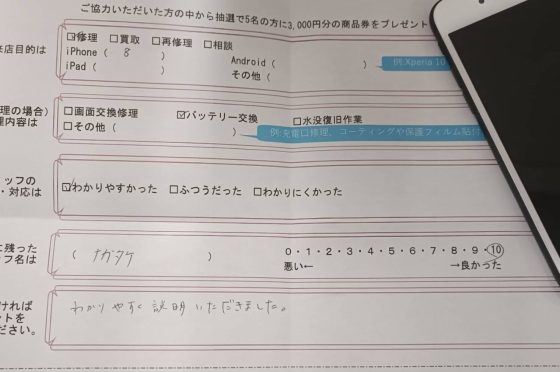 ご協力いただいた方の中から抽選で5名の方に3,000円分の商品券をプレゼント
来店目的は
☑修理 □買取 □再修理 □相談
iPhone ( 8 ) Android ( )
例:Xperia 10
iPad ( ) その他 ( )
理の場合)
理内容は
□画面交換修理 ☑バッテリー交換 □水没復旧作業
□その他 ( )
例:充電口修理、コーティングや保護フィルム貼付
ッフの
・対応は
☑わかりやすかった □ふつうだった □わかりにくかった
に残った
ッフ名は
( ナガタケ )
0・1・2・3・4・5・6・7・8・9・10
悪い← →良かった
ければ
ントを
ださい。
わかりやすく説明いただきました。